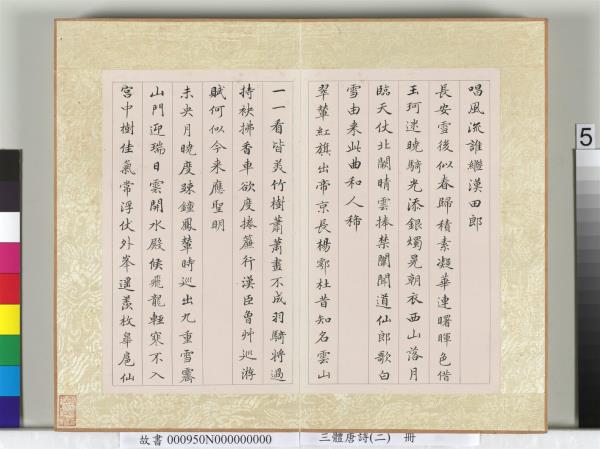 唱風流誰繼漢田郎
長安雪後似春歸積素凝華連曙暉色借
玉珂迷曉騎光添銀燭晃朝衣西山落月
臨天仗北闕晴雲捧禁闈聞道仙郎歌白
雪由来此曲和人稀
翠輦紅旗出帝京長楊鄠杜昔知名雲山
一一看皆美竹樹蕭蕭畫不成羽騎將過
持袂拂香車欲度捲簾行漢臣曾艸巡游
賦何似今来應聖明
未央月曉度疎鐘鳳輦時巡出九重雪霽
山門迎瑞日雲開水殿候飛龍輕寒不入
宮中樹佳氣常浮仗外峯遥羨枚皋扈仙
故書 000950N000000000
三體唐詩(二) 冊
5